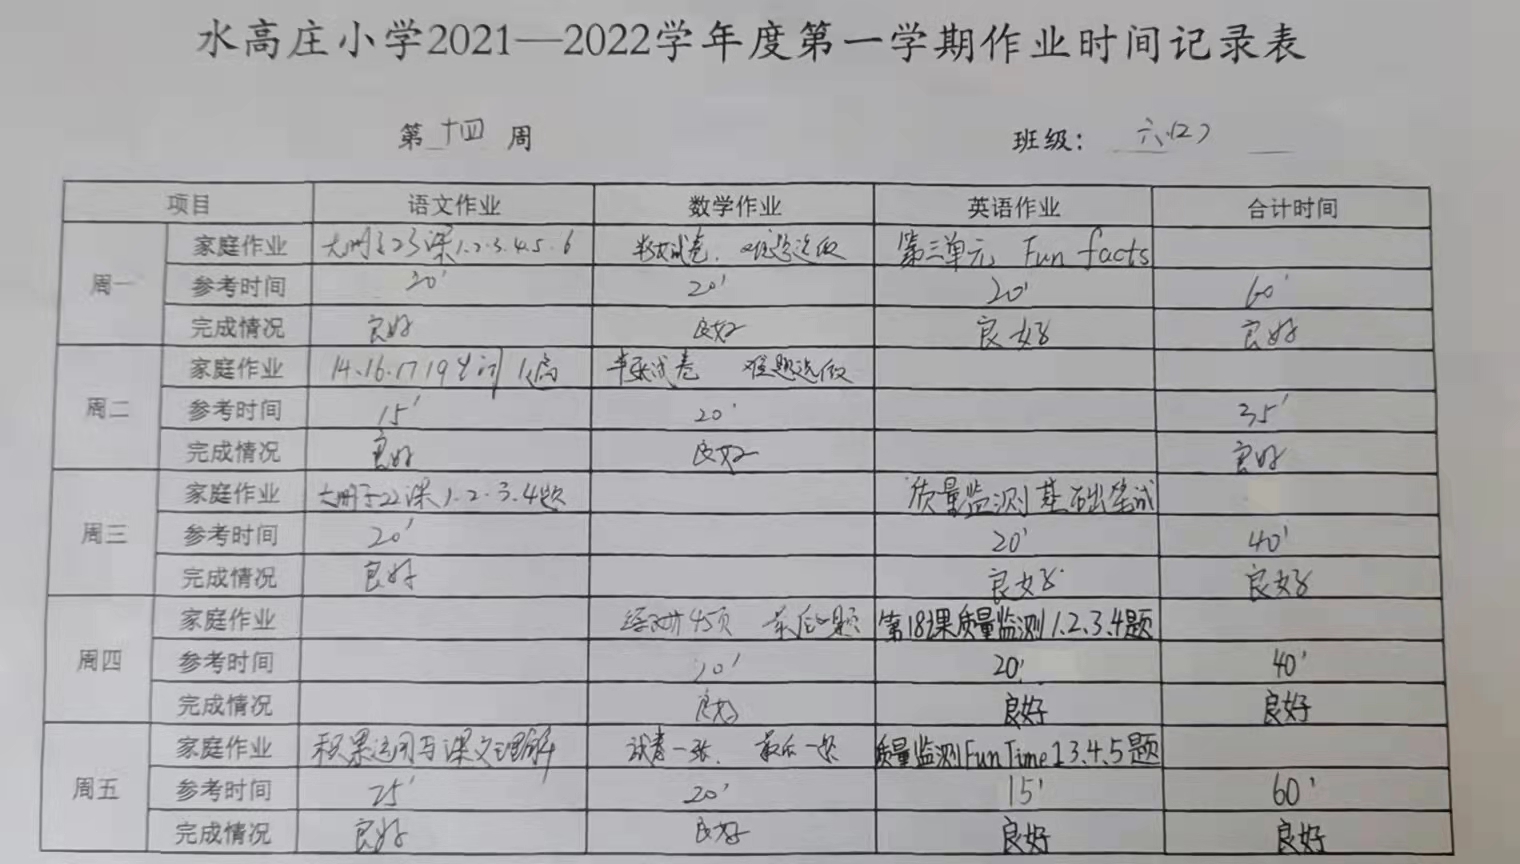 水高庄小学2021—2022学年度第一学期作业时间记录表
第 十四 周 班级： 六(2)
项目 语文作业 数学作业 英语作业 合计时间
周一
家庭作业 大册子23课1.2.3.4.5.6 试卷. 难题选做 第三单元 Fun facts
参考时间 20' 20' 20' 60'
完成情况 良好 良好 良好 良好
周二
家庭作业 14.16.17.19 半张试卷 难题选做
参考时间 15' 20' 35'
完成情况 良好 良好 良好
周三
家庭作业 大册子22课1.2.3.4题 质量监测基础笔试
参考时间 20' 20' 40'
完成情况 良好 良好 良好
周四
家庭作业 45页 题 第18课质量监测1.2.3.4题
参考时间 20' 20' 40'
完成情况 良好 良好 良好
周五
家庭作业 积累运用与课文理解 试卷一张. 质量监测Fun Time 1 3.4.5题
参考时间 25' 20' 15' 60'
完成情况 良好 良好 良好 良好